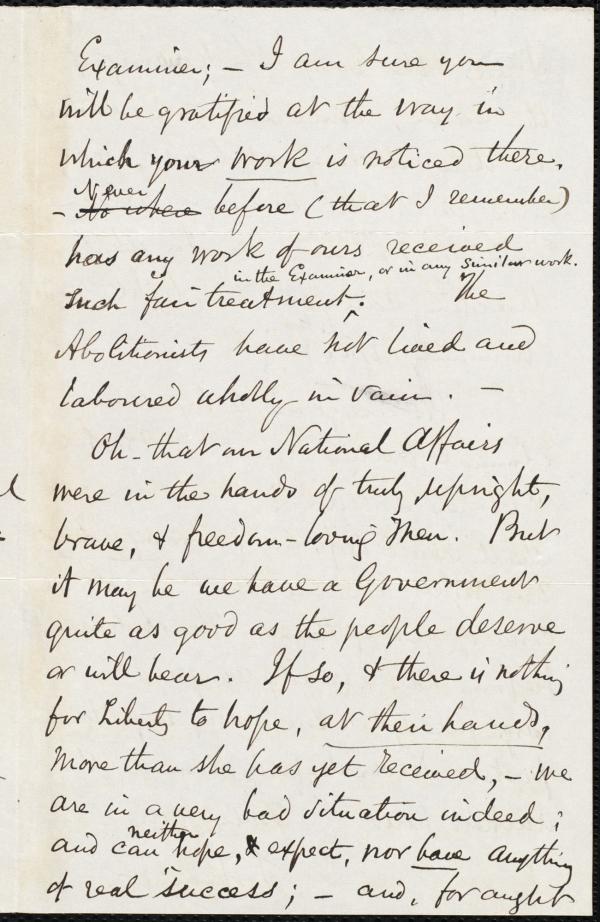 Examiner; – I am sure you
will be gratified at the way in
which your work is noticed there.
Never
– No where before (that I remember)
has any work of ours received
in the Examiner, or in any similar work.
such fair treatment. The
Abolitionists have not lived and
laboured wholly in vain. –
Oh – that our National Affairs
were in the hands of truly upright,
brave, & freedom-loving Men. But
it may be we have a Government
quite as good as the people deserve
or will bear. If so, & there is nothing
for Liberty to hope, at their hands,
more than she has yet received, – we
are in a very bad situation indeed;
neither
and can hope, & expect, nor have anything
of real success; – and, for aught